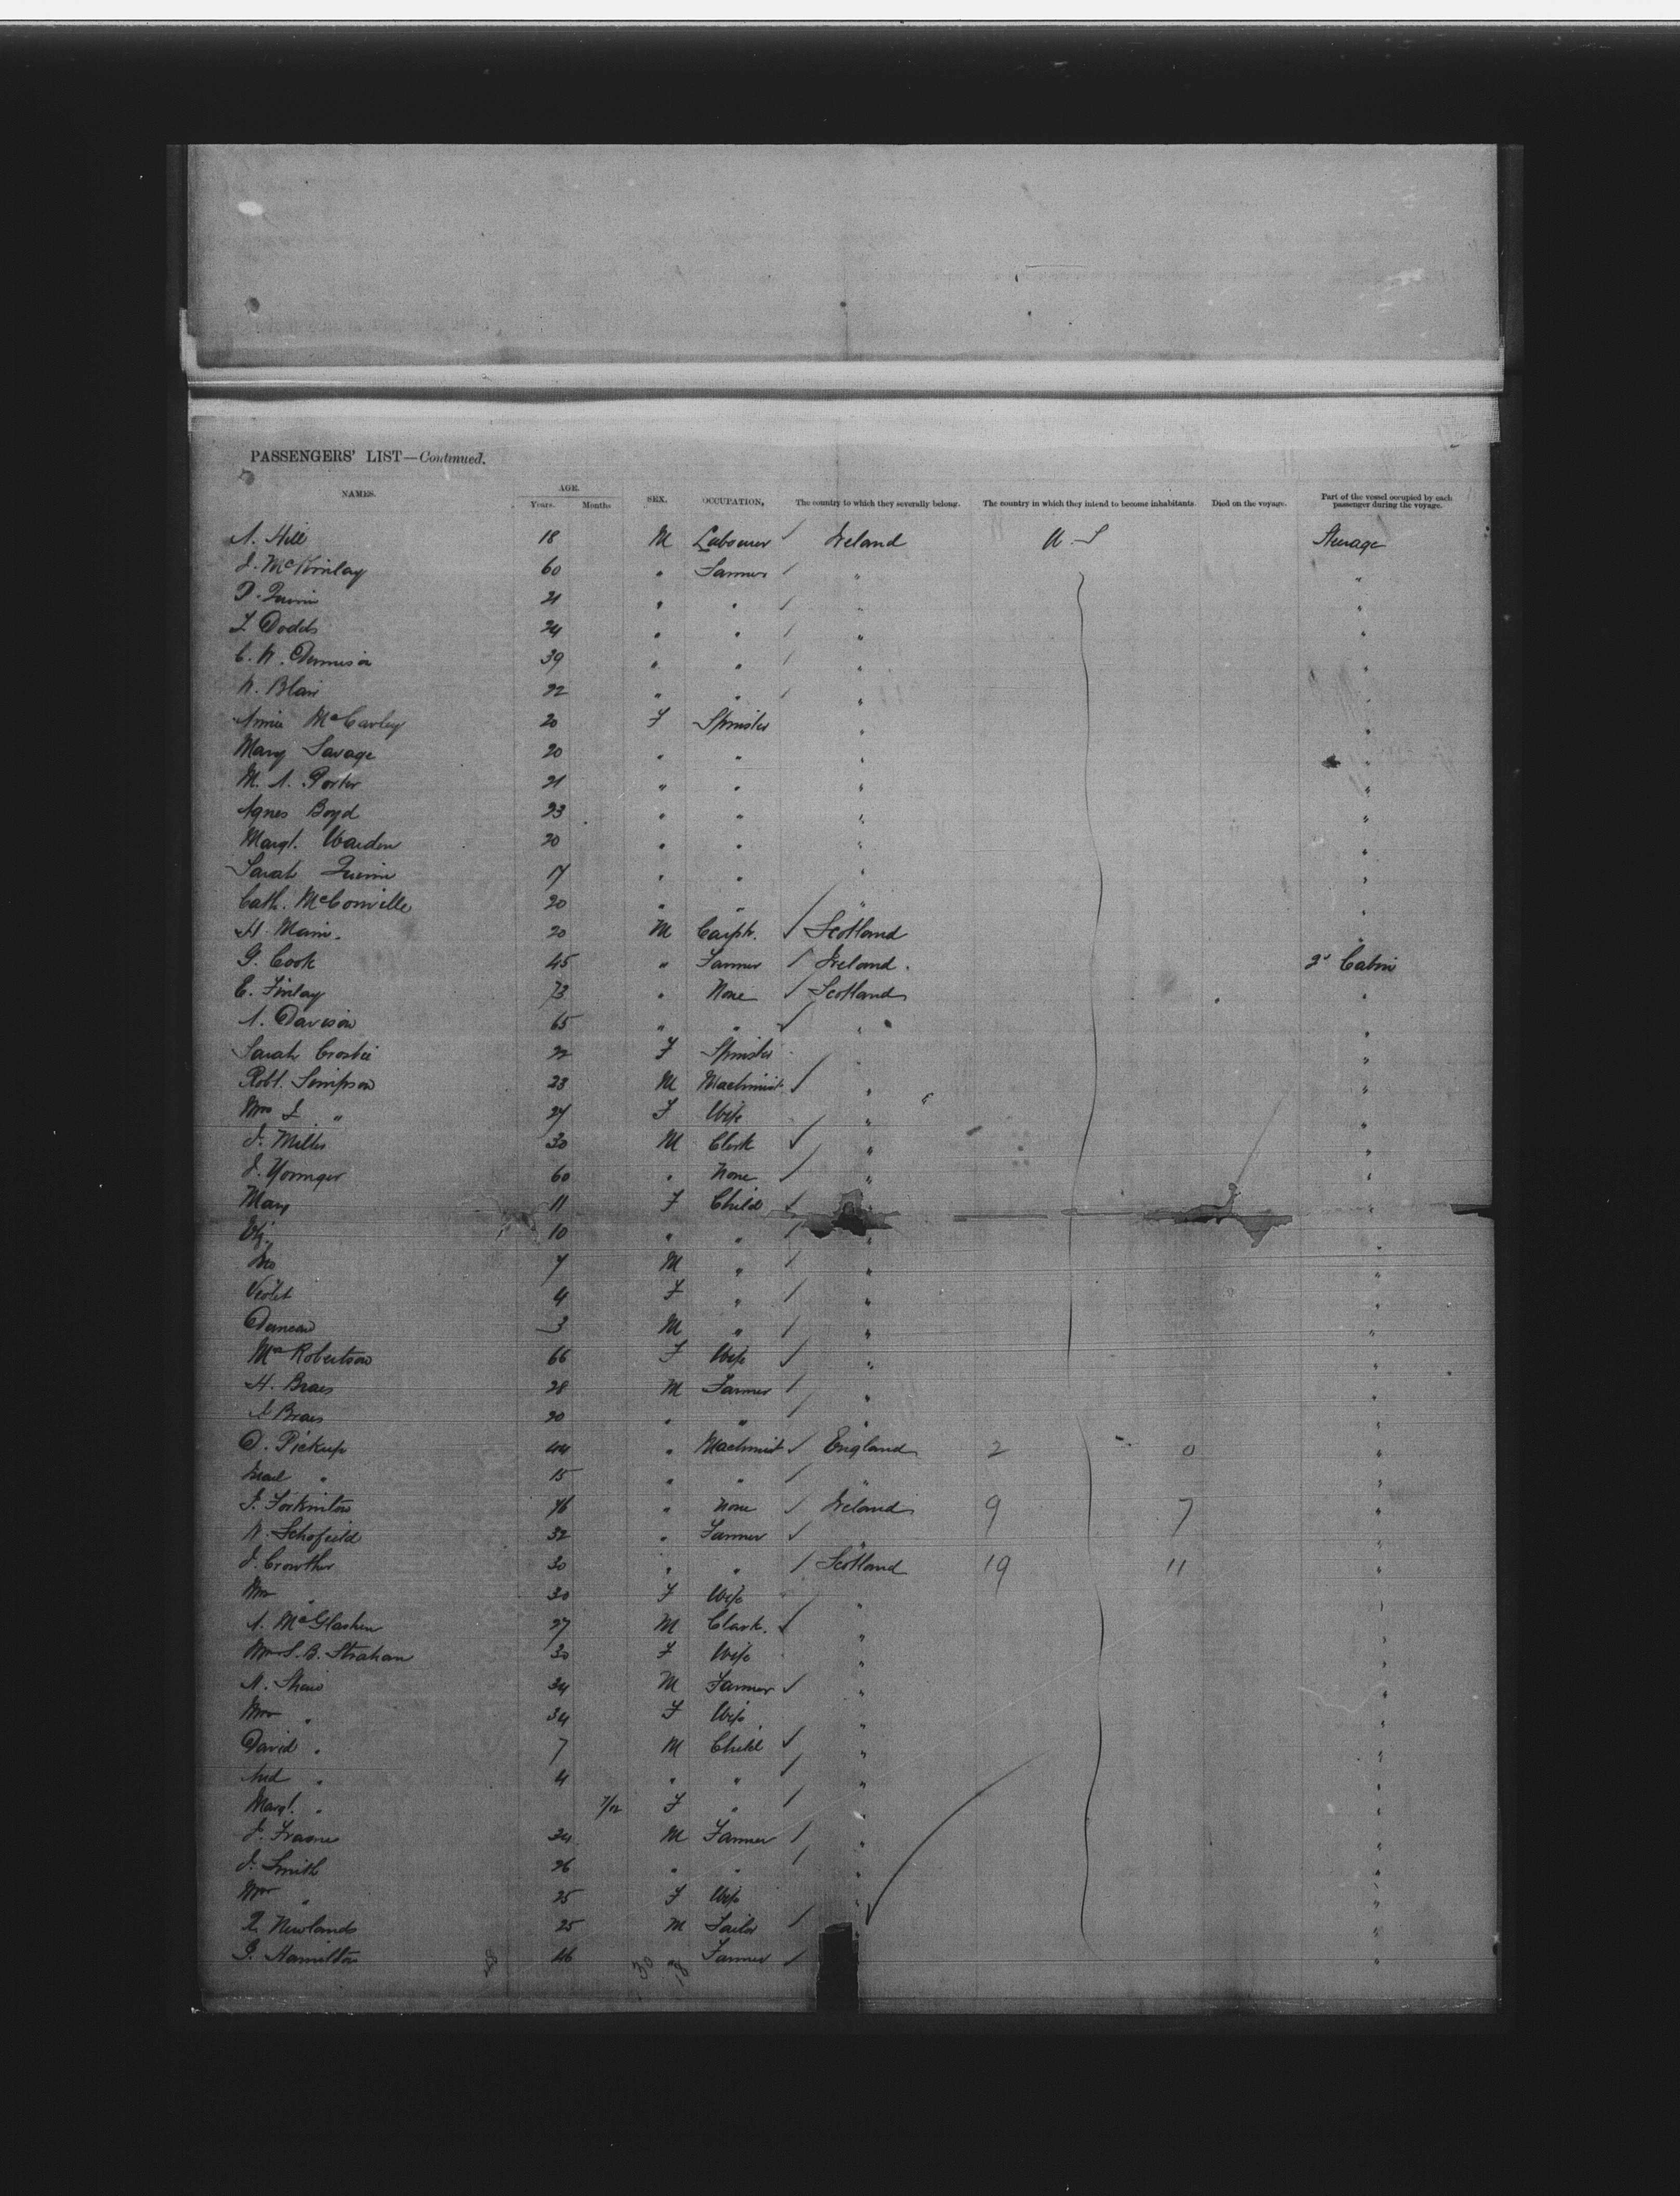 PASSENGERS' LIST—Continued.
NAMES. AGE. Years. Months SEX. OCCUPATION, The country to which they severally belong. The country in which they intend to become inhabitants. Died on the voyage. Part of the vessel occupied by each passenger during the voyage.
A. Hill 18 M Labourer / Ireland U.S Steerage
J. McKinlay 60 " Farmer / " "
P. Quinn 21 " " / " "
J. Dodds 24 " " / " "
C. W. Dennison 39 " " / " "
W. Blair 22 " " / " "
Annie McCarley 20 F Spinster " "
Mary Savage 20 " " " "
M. A. Porter 21 " " " "
Agnes Boyd 23 " " " "
Margt. Warden 20 " " " "
Sarah Quinn 17 " " " "
Cath. McConville 20 " " " "
H. Main. 20 M Carptr. / Scotland "
G. Cook 45 " Farmer / Ireland. 2d Cabin
E. Finlay 73 " None / Scotland "
A. Davison 65 " " / " "
Sarah Crosbie 22 F Spinster " "
Robt. Simpson 23 M Machinist / " "
Mrs J. " 27 F Wife " "
J. Miller 30 M Clerk / " "
J. Younger 60 " None / " "
Mary 11 F Child / " "
Elz. 10 " " / " "
7 M " / " "
Violet 4 F " / " "
Duncan 3 M " / " "
Mrs Robertson 66 F Wife / " "
H. Braes 28 M Farmer / " "
Braes 20 " " / " "
D. Pickup 44 " Machinist / England 2 0 "
" 15 " " / " "
J. 46 " None / Ireland 9 7 "
W. Schofield 32 " Farmer / " "
J. Crowther 30 " " / Scotland 19 11 "
Mrs " 30 F Wife " "
A. McGlashen 27 M Clerk. / " "
Mrs S. B. Strahan 30 F Wife " "
A. Shaw 34 M Farmer / " "
Mrs " 34 F Wife " "
David " 7 M Child / " "
And " 4 " " / " "
Margt. " 7/12 F " / " "
J. Fraser 24 M Farmer / " "
J. Smith 26 " " / " "
Mrs " 25 F Wife " "
R. Newlands 25 M Tailor / " "
G. Hamilton 46 " Farmer / "
48 30 18